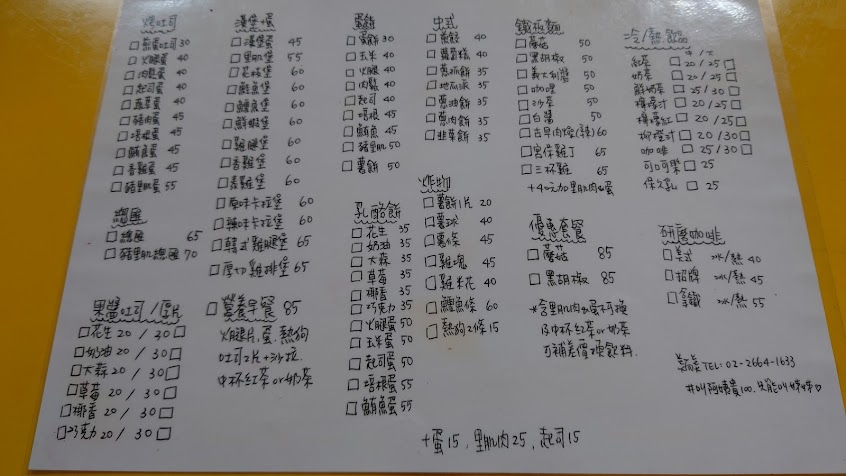 烤吐司
□煎蛋吐司30
□火腿蛋 40
□肉鬆蛋 40
□起司蛋 40
□蔬菜蛋 40
□豬肉蛋 45
□培根蛋 45
□鮪魚蛋 45
□香雞蛋 45
□豬里肌蛋 55
總匯
□總匯 65
□豬里肌總匯 70
果醬吐司/厚片
□花生 20 / 30□
□奶油 20 / 30□
□大蒜 20 / 30□
□草莓 20 / 30□
□椰香 20 / 30□
□巧克力 20 / 30□
漢堡+蛋
□漢堡蛋 45
□里肌堡 55
□花枝堡 60
□鮭魚堡 60
□鱈魚堡 60
□鮮蝦堡 60
□雞腿堡 60
□香雞堡 60
□燻雞堡 60
□原味卡拉堡 60
□辣味卡拉堡 60
□韓式雞腿堡 65
□厚切雞排堡 65
□營養早餐 85
火腿片.蛋.熱狗
吐司2片+沙拉
中杯紅茶or奶茶
蛋餅
□蛋餅 30
□玉米 40
□火腿 40
□肉鬆 40
□起司 40
□培根 45
□鮪魚 45
□豬里肌 50
□薯餅 50
乳酪餅
□花生 35
□奶油 35
□大蒜 35
□草莓 35
□椰香 35
□巧克力 35
□火腿蛋 50
□玉米蛋 50
□起司蛋 50
□培根蛋 55
□鮪魚蛋 55
中式
□蒸餃 40
□蘿蔔糕 40
□蔥抓餅 35
□地瓜派 35
□蔥油餅 35
□蔥肉餅 35
□韭菜餅 35
炸物
□薯餅1片 20
□薯球 40
□薯條 45
□雞塊 45
□雞米花 40
□鱈魚條 60
□熱狗2條 15
鐵板麵
□蘑菇 50
□黑胡椒 50
□義大利醬 50
□咖哩 50
□沙茶 50
□白醬 50
□古早肉燥(辣) 60
□宮保雞丁 65
□三杯雞 65
+40元加里肌肉or蛋
優惠套餐
□蘑菇 85
□黑胡椒 85
*含里肌肉or蛋不換
附中杯紅茶or奶茶
可補差價換飲料.
冷/熱飲品
紅茶□20/25□
奶茶□20/25□
鮮奶茶□25/30□
檸檬汁□20/25□
檸檬紅□20/25□
柳橙汁□20/30□
咖啡□25/30□
可可果□25
保久乳□25
研磨咖啡
□美式 冰/熱 40
□招牌 冰/熱 45
□拿鐵 冰/熱 55
TEL:02-2664-1633
#叫阿姨貴100.只能叫姊姊♡
+蛋15 , 里肌肉25 , 起司15